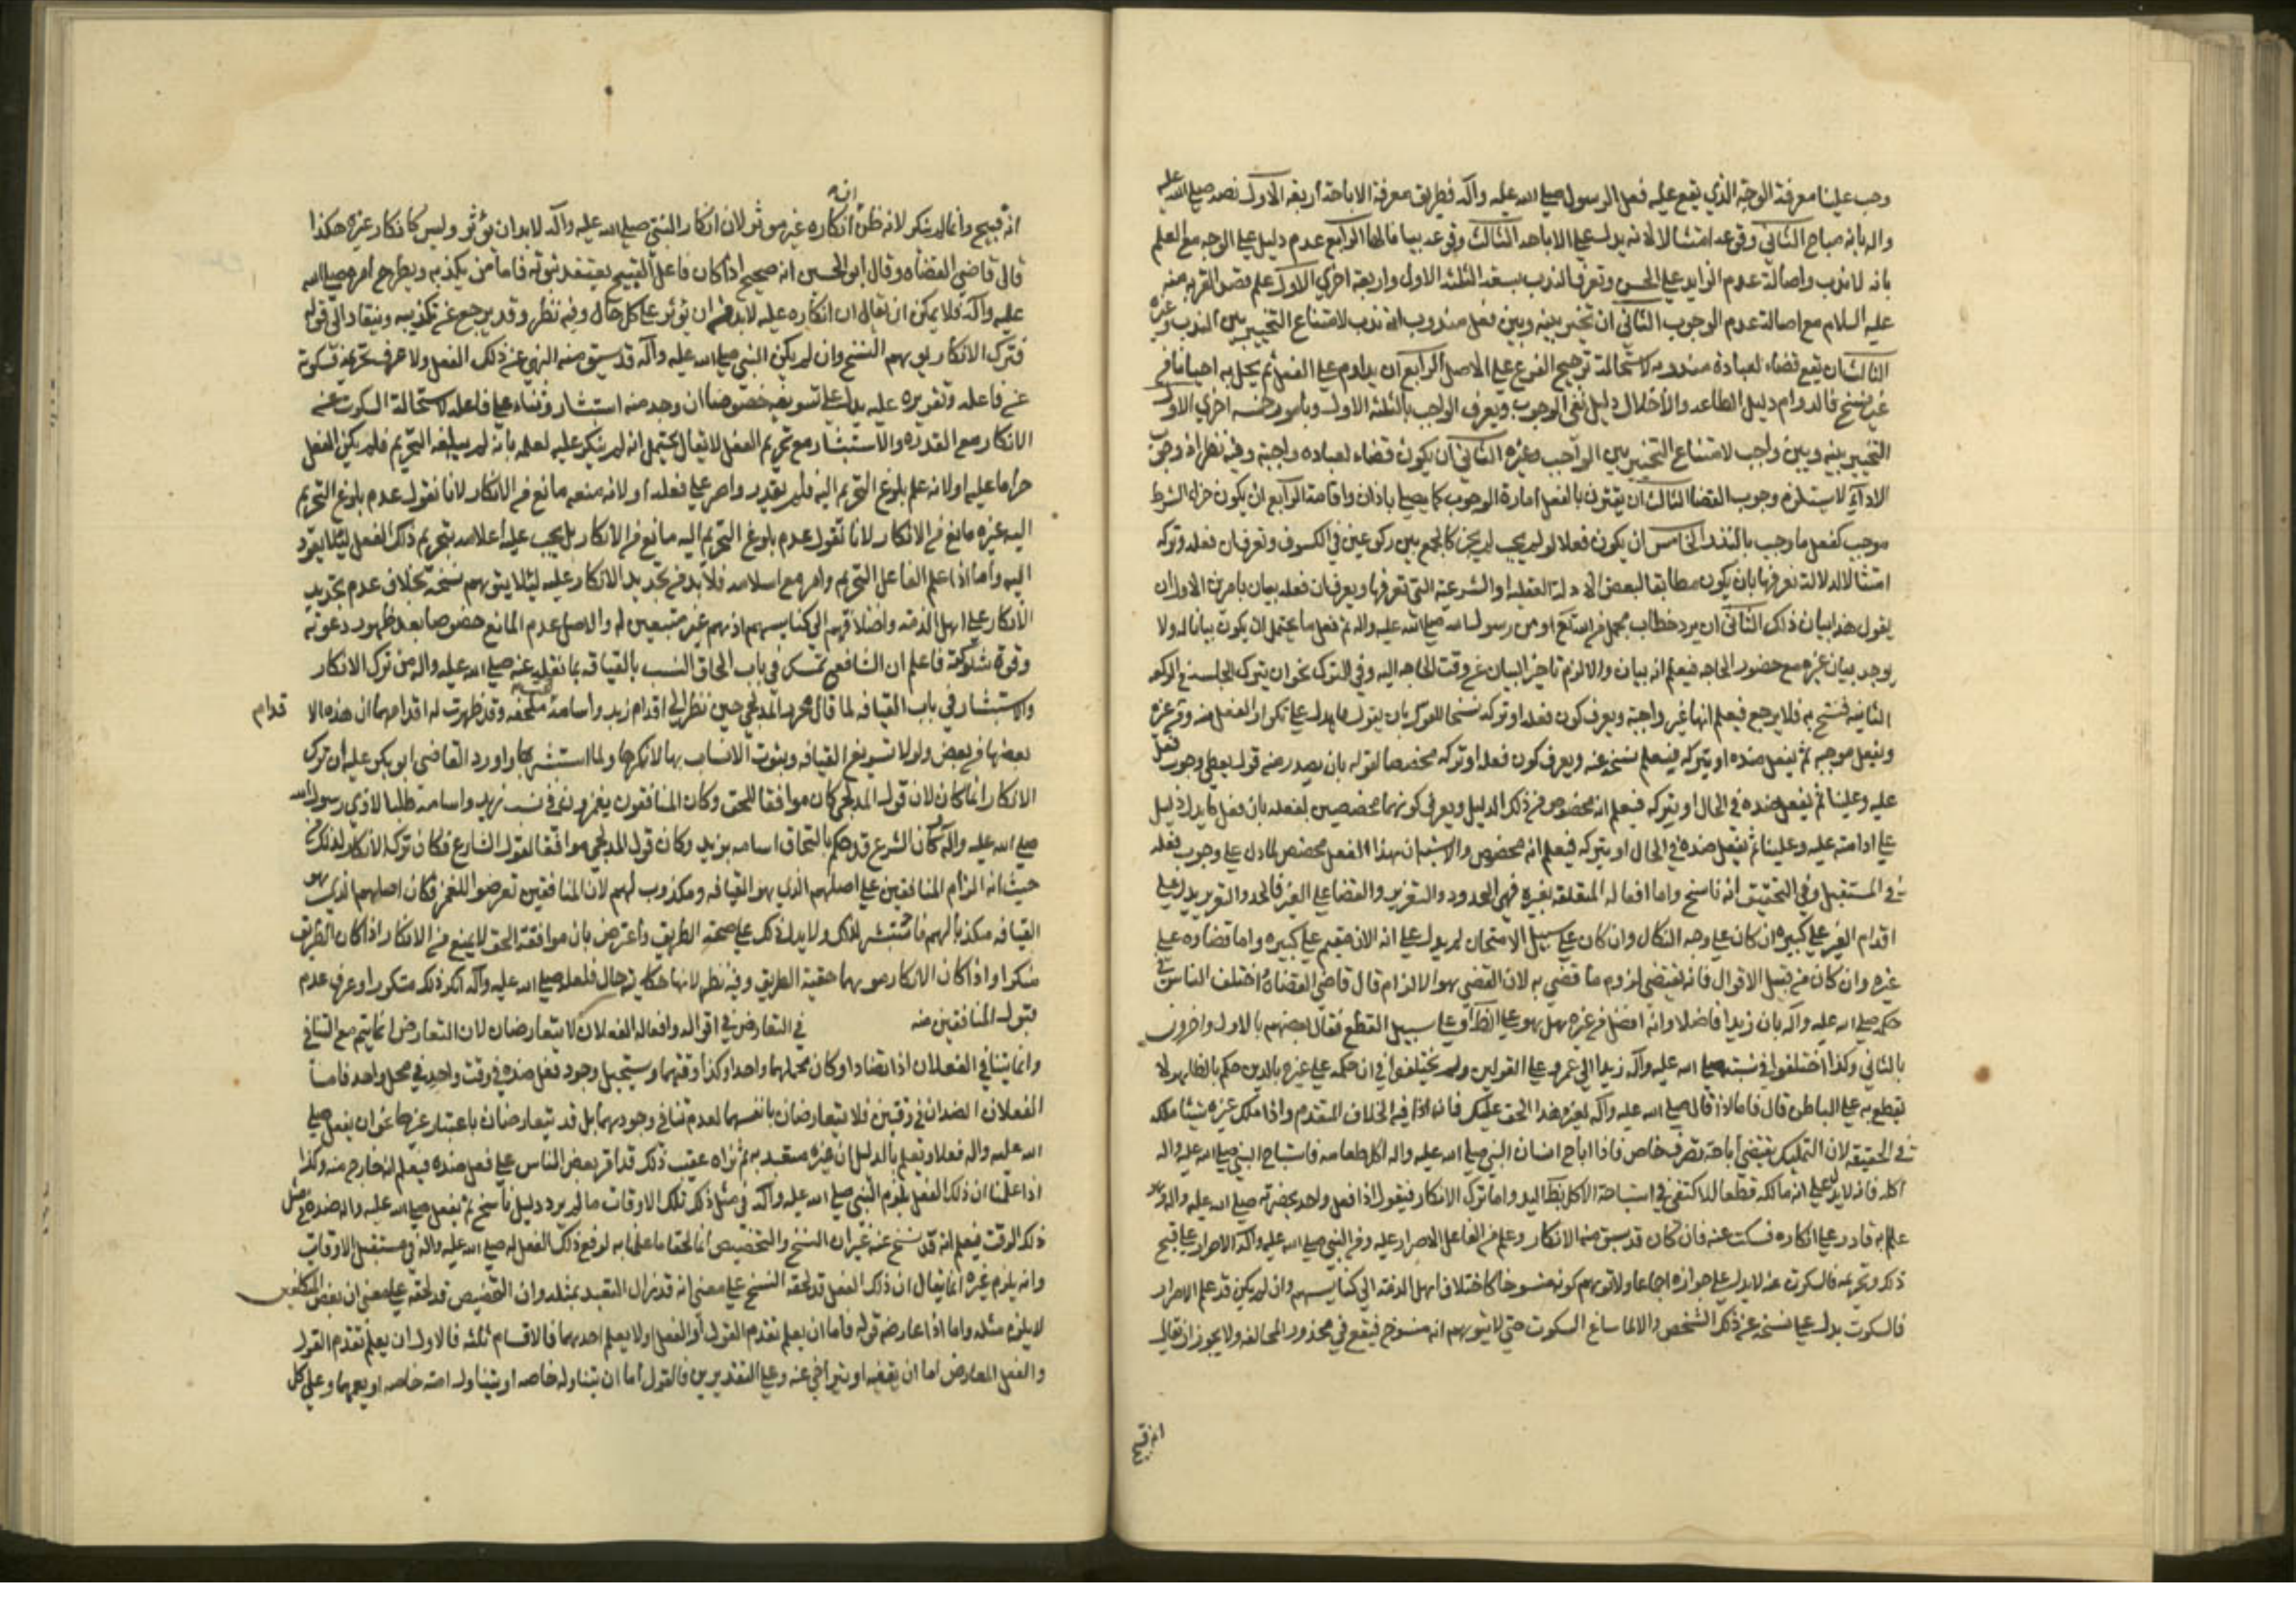 وجب علينا معرفة الوجه الذي يقع عليه فعل الرسول صلى الله عليه واله فطريق معرفة الاباحة اربعة الاول نصه صلى الله عليه
واله بانه مباح الثاني وقوعه امتثالا لاية يدل على الاباحة الثالث وقوعه بيانا لها الرابع عدم دليل على الوجه مع العلم
بانه لا ذنب واصالة عدم الزايد على الحسن وتعرف الندب بسقه الثلثة الاول واربعة اخرى الاول علم قصد القربه منه
عليه السلام مع اصالة عدم الوجوب الثاني ان تخير بينه وبين فعل مندوب انه ندب لامتناع التخيير بين الندب وغيره
الثالث ان يقع قضاء لعبادة مندوبه لاستحالة ترجيح الفرع على الاصل الرابع ان يداوم على الفعل ثم يخل به احيانا من
غير نسخ فالدوام دليل الطاعة والاخلال دليل نفي الوجوب ويعرف الواجب بالثلثة الاول وبامور خمسه اخرى الاول
التخيير بينه وبين واجب لامتناع التخيير بين الواجب وغيره الثاني ان يكون قضاء لعباده واجبة وفيه نظر اذ وجوب
الاداء لا يستلزم وجوب القضا الثالث ان يقترن بالفعل امارة الوجوب كما يصلى باذان واقامة الرابع ان يكون جزاء الشرط
موجب كفعل ما وجب بالنذر الخامس ان يكون فعلا لو لم يجب لم يجز كالجمع بين ركوعين في الكسوف وتعرف ان فعله وتركه
امتثالا لدلالة نعرفها بان يكون مطابقا لبعض الادلة العقلية او الشرعية التي نعرفها ويعرف ان فعله بيان بامرين الاول ان
يقول هذا بيان ذلك الثاني ان يرد خطاب مجمل من الله تع او من رسول الله صلى الله عليه واله ثم فعل ما يحتمل ان يكون بيانا له ولا
يوجد بيان غيره مع حضور الحاجه فيعلم انه بيان والا لزم تاخير البيان عن وقت الحاجه اليه وفي الترك نحو ان يترك الجلسه في الركعه
الثانيه فسبح به فلا يرجع فيعلم انها غير واجبة ويعرف كون فعله او تركه نسخا للقول بان يقول ما يدل على تكرار الفعل منه ومن غيره
ويفعل موجبه ثم يفعل ضده او يتركه فيعلم نسخه عنه ويعرف كون فعله او تركه مخصصا لقوله بان يصدر منه قول يعطي وجوب فعل
عليه وعلينا ثم يفعل ضده في الحال او يتركه فيعلم انه مخصوص من ذلك الدليل ويعرف كونهما مخصصين لفعله بان فعل ما يدل دليل
على ادامته عليه وعلينا ثم يفعل ضده في الحال او يتركه فيعلم انه مخصوص والاشبه ان هذا الفعل مخصص لما دل على وجوب فعله
في المستقبل وفي التحقيق انه ناسخ واما افعاله المتعلقه بغيره فهي الحدود والتعزير والقضا على الغير فالحد والتعزير يدل على
اقدام الغير على كبيرة ان كان على وجه النكال وان كان على سبيل الامتحان لم يدل على انه الان مقيم على كبيره واما قضاوه على
غيره وان كان من قبيل الاقوال فانه يقتضي لزوم ما قضي به لان القضى هو الالزام قال قاضي القضاة اختلف الناس في
حكمه صلى الله عليه واله بان زيدا فاضلا وانه افضل من غيره هل هو على الظاهر او على سبيل القطع فقال بعضهم بالاول واخرون
بالثاني وكذا اختلفوا في نسبته صلى الله عليه واله زيدا الى عمرو على القولين ولم يختلفوا في ان حكمه على غيره بالدين حكم بالظاهر لا
يقطع به على الباطن قال فاما اذا قال صلى الله عليه واله لغيره هذا الحق عليك فانه اذا فيه الخلاف المتقدم واذا ملك غيره شيئا ملكه
في الحقيقة لان التمليك يقتضي اباحة تصرف خاص فاذا اباح انسان النبي صلى الله عليه واله اكل طعامه فاستباح النبي صلى الله عليه واله
اكله فانه لا يدل على انه مالكه قطعا للاكتفى في استباحة الاكل بظاهر اليد واما ترك الانكار فيقول اذا فعل واحد بحضرته صلى الله عليه واله
علم به قادر على انكاره فسكت عنه فان كان قد سبق منه الانكار وعلم من الفاعل الاصرار عليه ومن النبي صلى الله عليه واله الاصرار على قبح
ذلك وتحريمه فالسكوت عنه لا يدل على جوازه اجماعا ولا توهم كونه منسوخا كاختلاف اهل الذمة الى كنايسهم وان لم يكن قد علم الاصرار
فالسكوت يدل على نسخه عن ذلك الشخص والا لما ساغ السكوت حتى لا يتوهم انه منسوخ فيقع في محذور المخالفه ولا يجوز ان يقال
انه قبيح
انه
انه قبيح وانما لم ينكر لانه ظن انكاره غير موثر لان انكار النبي صلى الله عليه واله لا بد وان يوثر وليس كانكار غيره هكذا
قال قاضي القضاة وقال ابو الحسين انه صحيح اذا كان فاعل القبيح يعتقد نبوته فاما من يكذبه ويطرح امره صلى الله
عليه واله فلا يمكن ان يقال ان انكاره عليه لا بد من ان يوثر على كل حال وفيه نظر وقد يرجع عن تكذيبه وينقاد الى قوله
فترك الانكار يوهم النسخ وان لم يكن النبي صلى الله عليه واله قد سبق منه النهي عن ذلك الفعل ولا عرف تحريمه فسكوته
عن فاعله وتقريره عليه يدل على تسويغه خصوصا ان وجد منه استبشار وثناء على فاعله لاستحالة السكوت عنه
الانكار مع القدره والاستبشار مع تحريم الفعل لا يقال يحتمل انه لم ينكر عليه لعلمه بانه لم يبلغه التحريم فلم يكن الفعل
حراما عليه او لانه علم بلوغ التحريم اليه فلم يقدر واصر على فعله او لانه منعه مانع من الانكار لانا نقول عدم بلوغ التحريم
اليه غيره مانع من الانكار لانا نقول عدم بلوغ التحريم اليه مانع من الانكار بل يجب عليه اعلامه بتحريم ذلك الفعل ليلا يعود
اليه واما اذا علم الفاعل التحريم واصر مع اسلامه فلا بد من تجديد الانكار عليه ليلا يتوهم نسخه بخلاف عدم تجديد
الانكار على اهل الذمة واختلافهم الى كنايسهم اذ هم غير متبعين له والاصل عدم المانع خصوصا بعد ظهور دعوته
وقوة شوكته فاعلم ان الشافعي تمسك في باب الحاق النسب بالقيافه بما نقل عنه صلى الله عليه واله من ترك الانكار
والاستبشار في باب القيافه لما قال محرز المدلجي حين نظر الى اقدام زيد واسامة ملحفة وقد ظهرت له اقدامهما ان هذه الا
قدام
بعضها من بعض ولولا تسويغ القيافه وبثوت الانساب بها لانكرها ولما استبشر بها واورد القاضي ابو بكر عليه ان ترك
الانكار انما كان لان قول المدلجي كان موافقا للحق وكان المنافقون يغمزون في نسب زيد واسامة طلبا لاذي رسول الله
صلى الله عليه واله وكان الشرع قد حكم بالتحاق اسامه بزيد وكان قول المدلجي موافقا لقول الشارع فكان تركه الانكار لذلك
حيث انه الزام المنافقين على اصلهم الذي هو القيافه ومكذوب لهم لان المنافقين تعرضوا للغمز فكان اصلهم الذي هو
القيافه مكذبا لهم فاستبشر لذلك ولا يدل ذلك على صحة الطريق واعترض بان موافقة الحق لا يمنع من الانكار اذا كان الطريق
منكرا واذا كان الانكار موهما حقية الطريق وفيه نظر لانها حكاية حال فلعله صلى الله عليه واله انكر ذلك متكررا وعرف عدم
قبول المنافقين منه في التعارض في اقواله وافعاله الفعلان لا يتعارضان لان التعارض انما يتم مع التنافي
وانما يتنافي الفعلان اذا تضادا وكان محلهما واحدا وكذا وقتهما ويستحيل وجود فعل ضده في وقت واحد في محل واحد فاما
الفعلان الضدان في وقتين فلا يتعارضان بانفسهما لعدم تنافي وجودهما بل قد يتعارضان باعتبار غيرهما نحو ان يفعل صلى
الله عليه واله فعلا ويعلم بالدليل ان غيره متعبد به ثم نراه عقيب ذلك قد اقر بعض الناس على فعل ضده فيعلم انه خارج منه وكذا
اذا علمنا ان ذلك الفعل يلزم النبي صلى الله عليه واله في مثل ذلك تلك الاوقات ما لم يرد دليل ناسخ ثم يفعل صلى الله عليه واله ضده في مثل
ذلك الوقت فيعلم انه قد نسخ عنه غير ان النسخ والتخصيص انما لحقا ما علمنا به لرفع ذلك الفعل له صلى الله عليه واله في مستقبل الاوقات
وانه يلزم غيره انما يقال ان ذلك الفعل قد لحقه النسخ على معنى انه قد زال التعبد بمثله وان التخصيص قد لحقه على معنى ان بعض المكلفين
لا يلزم مثله واما اذا عارضه قوله فاما ان يعلم تقدم القول او الفعل او لا يعلم احدهما فالاقسام ثلثه فالاول ان يعلم تقدم القول
والفعل المعارض اما ان يعقبه او يتراخى عنه وعلى التقديرين فالقول اما ان يتناوله خاصه او يتناول امته خاصه او يعمهما وعلى كل